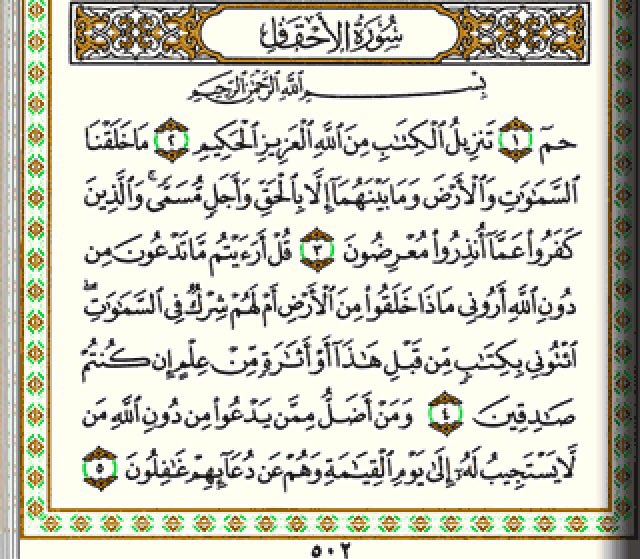 سُورَةُ الأَحْقَافِ
بِسْمِ اللَّهِ الرَّحْمَٰنِ الرَّحِيمِ
حمٓ ۝١ تَنزِيلُ الْكِتَٰبِ مِنَ اللَّهِ الْعَزِيزِ الْحَكِيمِ ۝٢ مَا خَلَقْنَا
السَّمَٰوَٰتِ وَالْأَرْضَ وَمَا بَيْنَهُمَآ إِلَّا بِالْحَقِّ وَأَجَلٍ مُّسَمًّى ۚ وَالَّذِينَ
كَفَرُوا۟ عَمَّآ أُنذِرُوا۟ مُعْرِضُونَ ۝٣ قُلْ أَرَءَيْتُم مَّا تَدْعُونَ مِن
دُونِ اللَّهِ أَرُونِي مَاذَا خَلَقُوا۟ مِنَ الْأَرْضِ أَمْ لَهُمْ شِرْكٌ فِي السَّمَٰوَٰتِ ۖ
ائْتُونِي بِكِتَٰبٍ مِّن قَبْلِ هَٰذَآ أَوْ أَثَٰرَةٍ مِّنْ عِلْمٍ إِن كُنتُمْ
صَٰدِقِينَ ۝٤ وَمَنْ أَضَلُّ مِمَّن يَدْعُوا۟ مِن دُونِ اللَّهِ مَن
لَّا يَسْتَجِيبُ لَهُۥٓ إِلَىٰ يَوْمِ الْقِيَٰمَةِ وَهُمْ عَن دُعَآئِهِمْ غَٰفِلُونَ ۝٥
٥٠٢